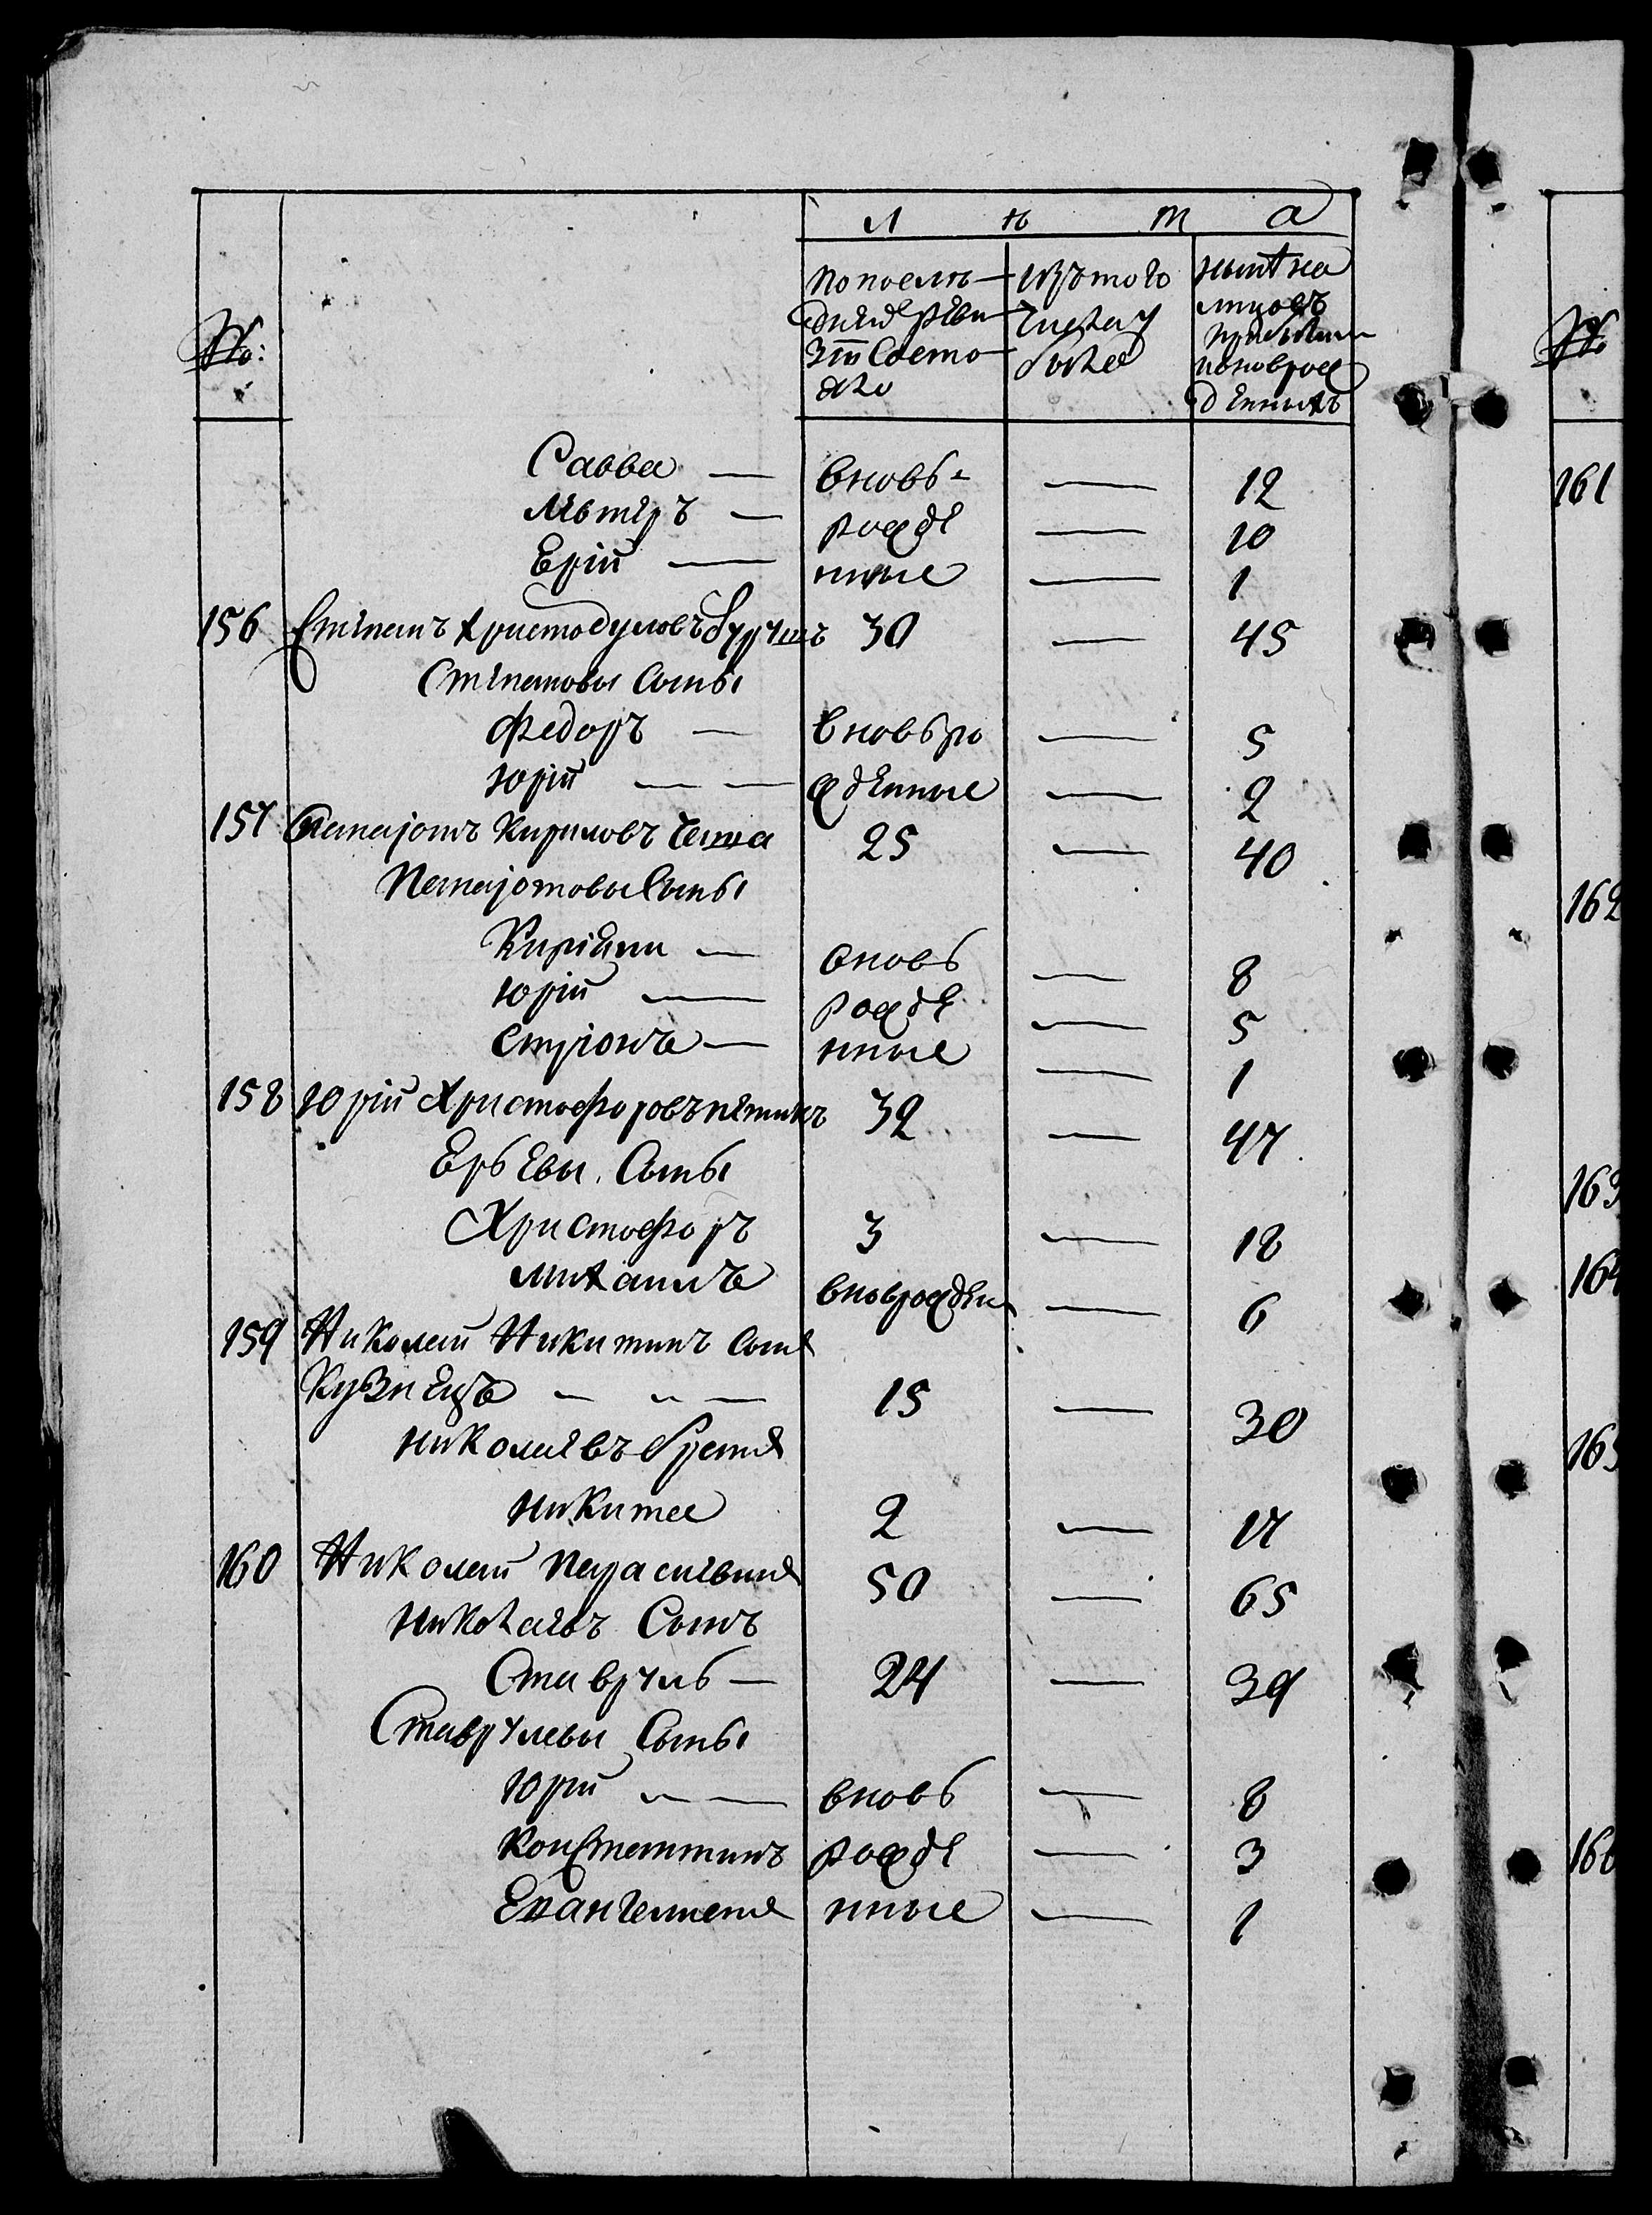 Л ѣ т а
№:
Попослѣ-
дней реви-
зіи Состо-
яло
Изътого
Числа у
было
нынѣ на
лицовъ
прибылы
и новрож
денныхъ
№
Савва — вновь- — 12
рожде — 10
Ерій — нные — 1
156 Степанъ Христодуловъ 30 — 45
Степановы Сыны
Федоръ — вновьро — 5
Юрій — жденные — 2
157 Панаіотъ Кириловъ Чепта 25 — 40
Панаіотовы Сыны
вновь — 8
Юрій — рожде — 5
нные — 1
158 Юрій Христофоровъ 32 — 47
Ерьевы Сыны
Христофоръ 3 — 18
Михаилъ вноврожден — 6
159 Николай Никитинъ Сынъ
Кузнецъ — 15 — 30
Николаевъ братъ
Никита 2 — 17
160 Николай 50 — 65
Николаевъ Сынъ
Ставруль — 24 — 39
Ставрулевы Сыны
Юрій — вновь — 8
Константинъ рожде — 3
нные — 1
161
162
163
164
165
166